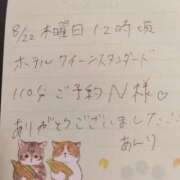 8/22 木曜日 12時頃
ホテル クイーンズスタンダード
110分 ご予約 N様♡
ありがとうございました
あんり